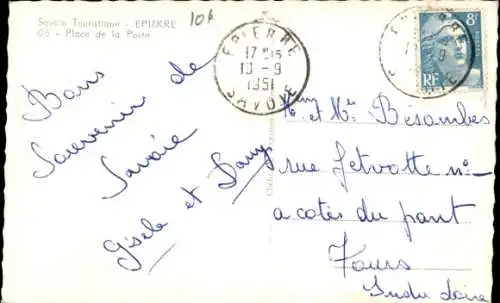 Savoie Touristique - EPIERRE
08 - Place de la Poste
10f
EPIERRE
17 H 15
10 - 9
1951
SAVOIE
8F
RF
Bons
Souvenir de
Savoie
Gisele et Dany
Mme et Mr Bésombes
rue Jetvotte no
a cotés du pont
Tours
Indre Loire